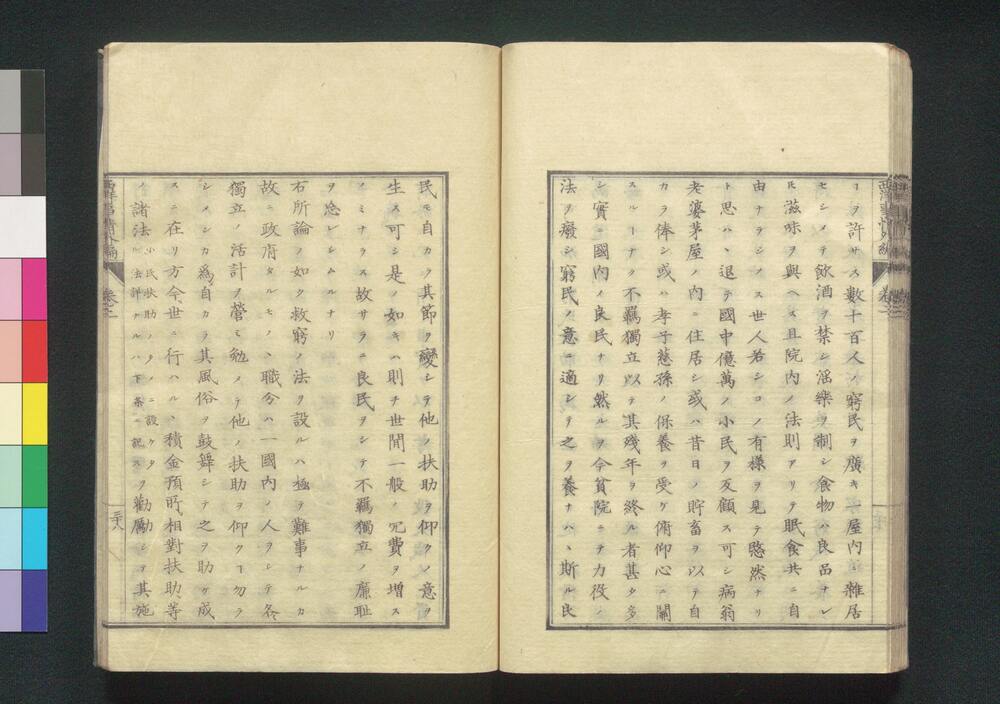 西洋事情外編
卷之二
ヿヲ許サス數十百人ノ窮民ヲ廣キ一屋内ニ雜居
セシメテ飲酒ヲ禁シ淫樂ヲ制シ食物ハ良品ナレ
𪜈滋味ヲ與ヘス且院内ノ法則アリテ眠食共ニ自
由ナラシメス世人若シコノ有様ヲ見テ愍然ナリ
ト思ハヽ退テ國中億萬ノ小民ヲ反顧ス可シ病翁
老婆茅屋ノ内ニ住居シ或ハ昔日ノ貯畜ヲ以テ自
カラ俸シ或ハ孝子慈孫ノ保養ヲ受ケ俯仰心ニ關
スルヿナク不羈獨立以テ其殘年ヲ終ル者甚タ多
シ實ニ國内ノ良民ナリ然ルヲ今貧院ニテ力役ノ
法ヲ癈シ窮民ノ意ニ適シテ之ヲ養ナハヽ斯ル良
民モ自カラ其節ヲ變シテ他ノ扶助ヲ仰クノ意ヲ
生ス可シ是ノ如キハ則チ世間一般ノ冗費ヲ増ス
ノミナラス故サラニ良民ヲシテ不羈獨立ノ廉耻
ヲ忘レシムルナリ
右所論ノ如ク救窮ノ法ヲ設ルハ極テ難事ナルカ
故ニ政府タルモノヽ職分ハ一國内ノ人ヲシテ各
獨立ノ活計ヲ營ミ勉メテ他ノ扶助ヲ仰クヿ勿ラ
シメンカ爲自カラ其風俗ヲ鼓舞シテ之ヲ助ケ成
スニ在リ方今世ニ行ハルヽ積金預所相對扶助等
ノ諸法小民扶助ノタメニ設ケタル法詳ナルハ下条ニ記スヲ勸勵シテ其施
西洋事情外編
卷之二
三十八